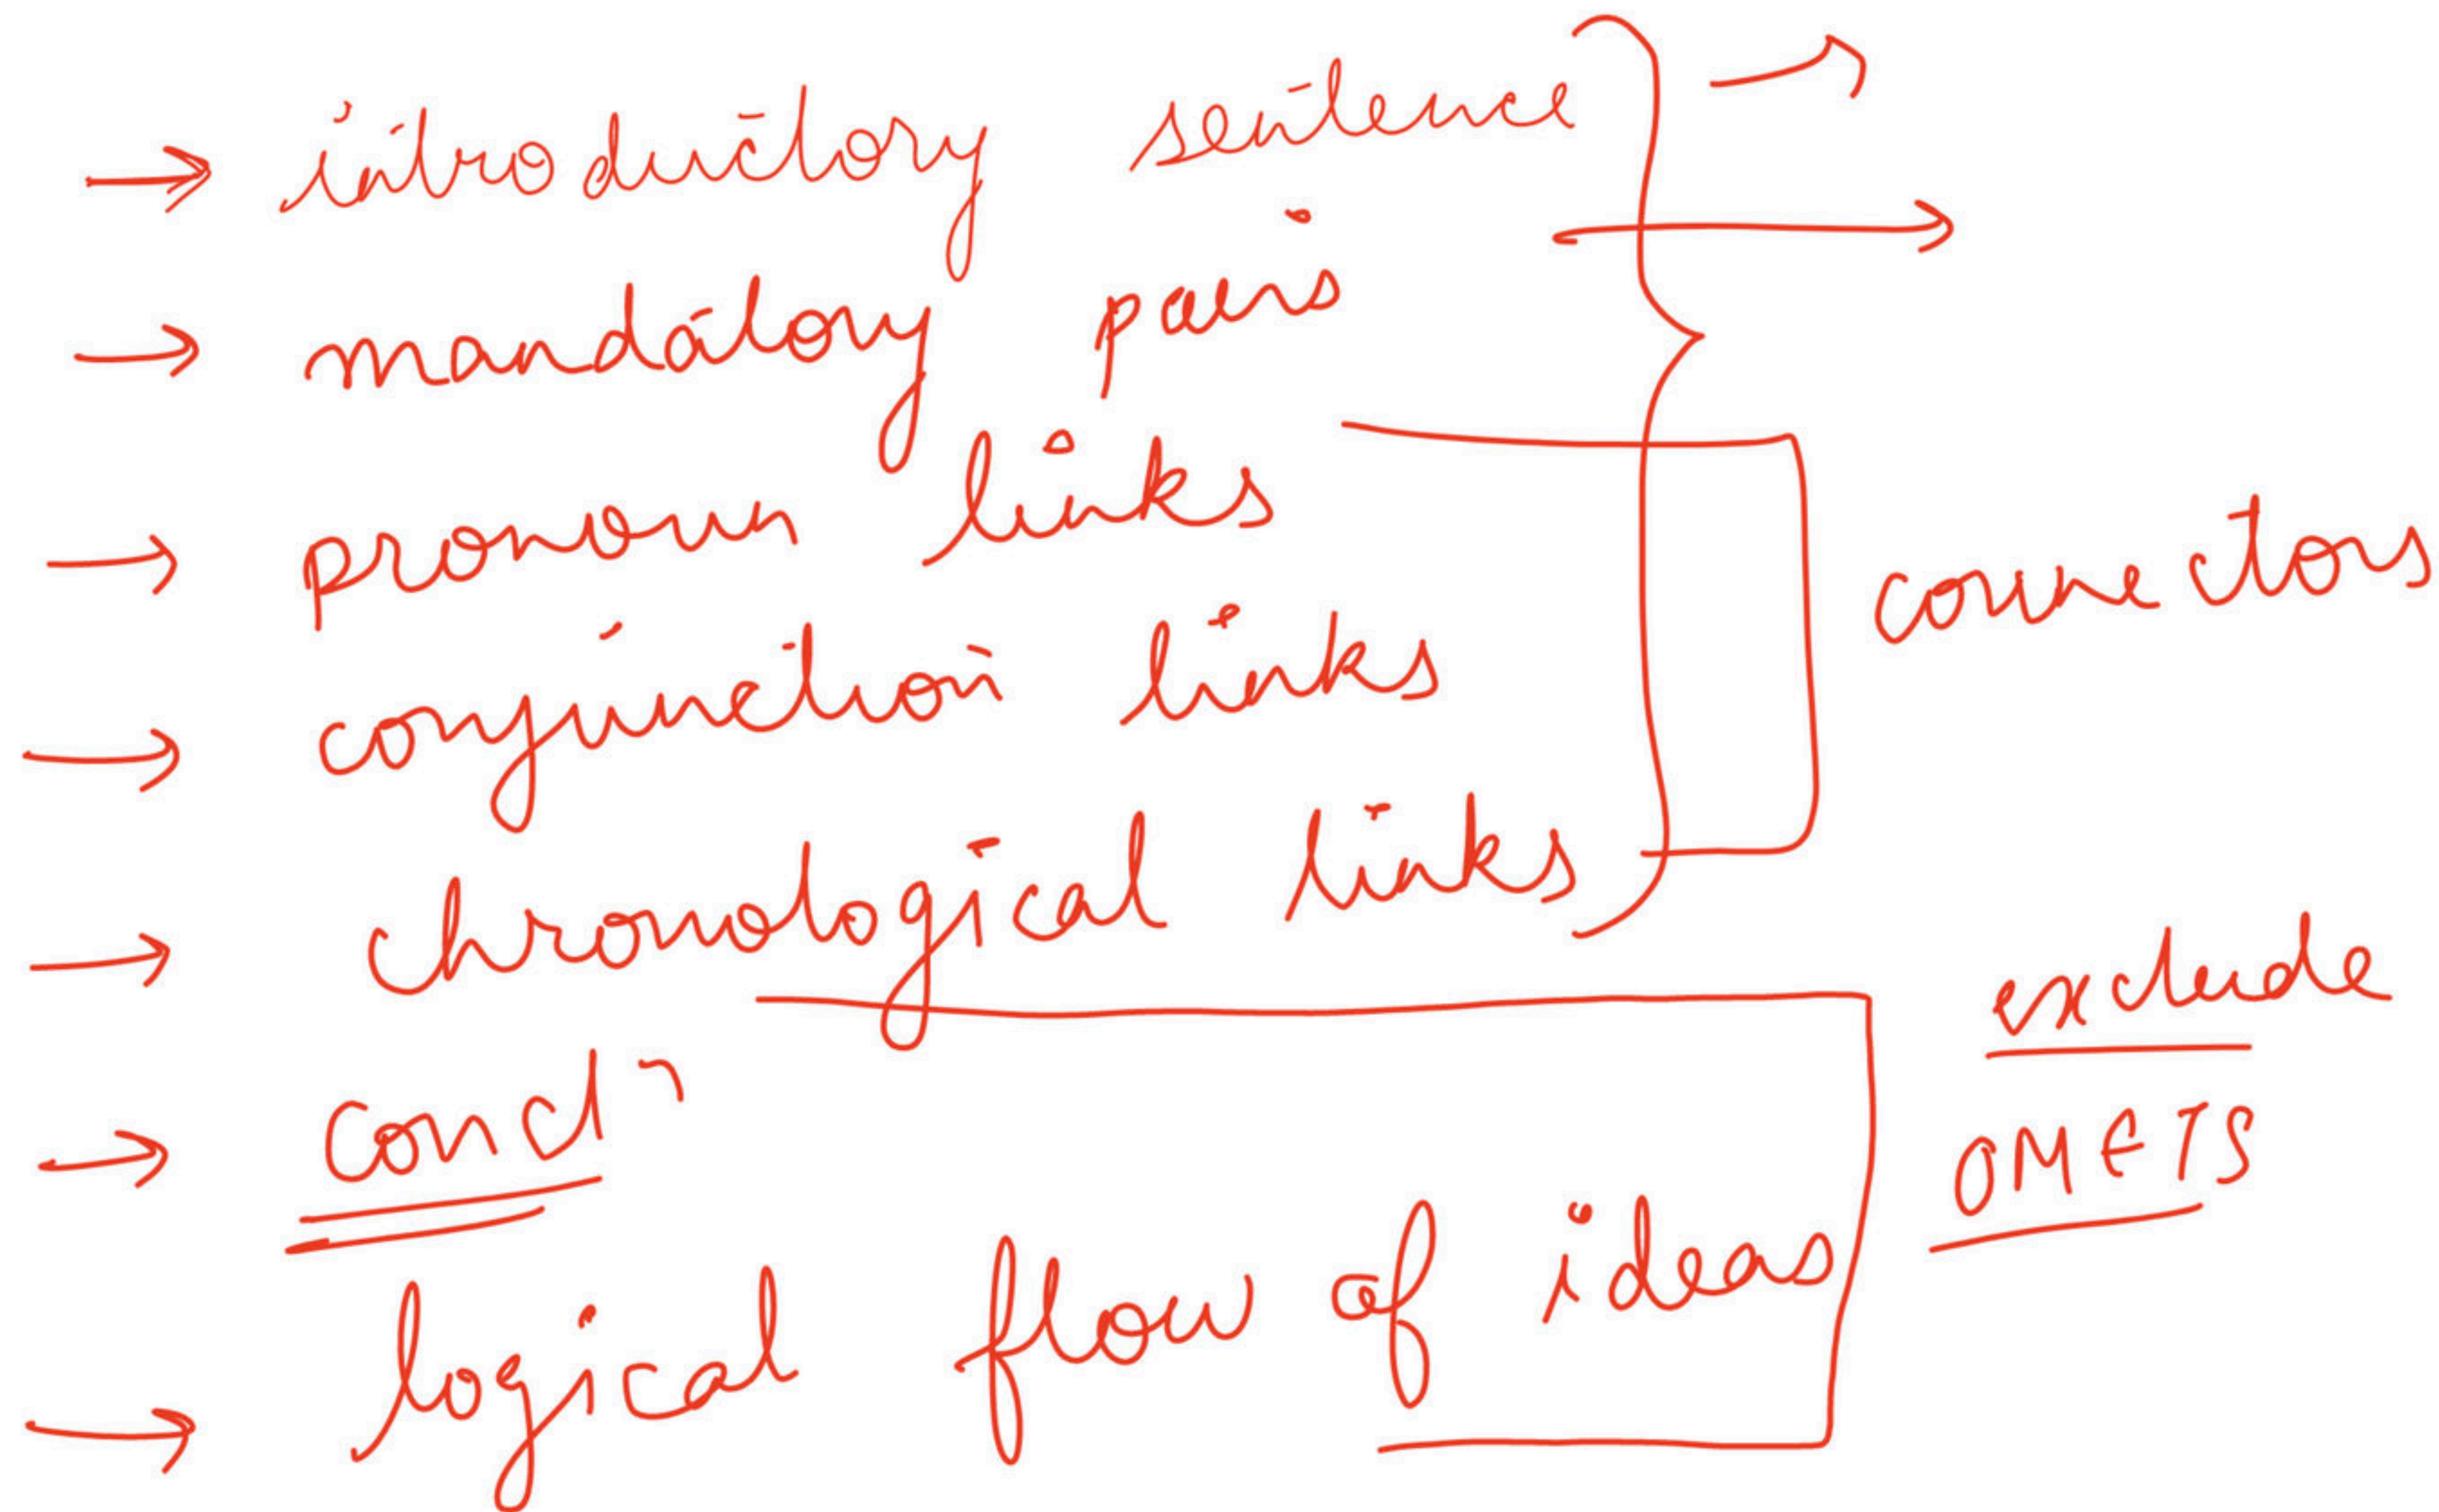 → introductory sentence →
→ mandatory pairs →
→ pronoun links
→ conjunction links
connectors
→ chronological links
→ concl
→ logical flow of ideas
exclude
OMETS